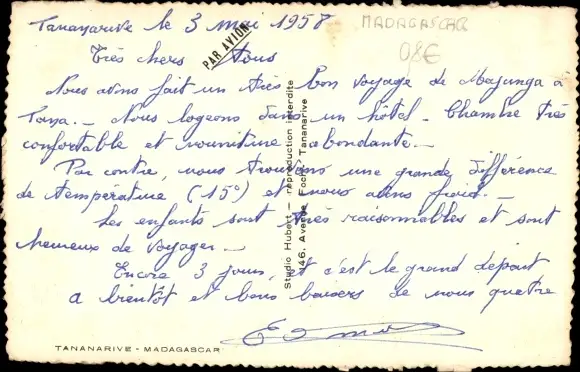 Tananarive le 3 mai 1958
MADAGASCAR
08€
PAR AVION
Très chers tous
Nous avons fait un très bon voyage de Majunga à
Tana. - Nous logeons dans un hôtel. Chambre très
confortable et nourriture abondante. -
Par contre, nous trouvons une grande différence
de température (15°) et nous avons froid. -
Les enfants sont très raisonnables et sont
heureux de voyager. -
Encore 3 jours, et c'est le grand départ
a bientôt et bons baisers de nous quatre
Studio Hubert - reproduction interdite
46, Avenue Foch - Tananarive
TANANARIVE - MADAGASCAR